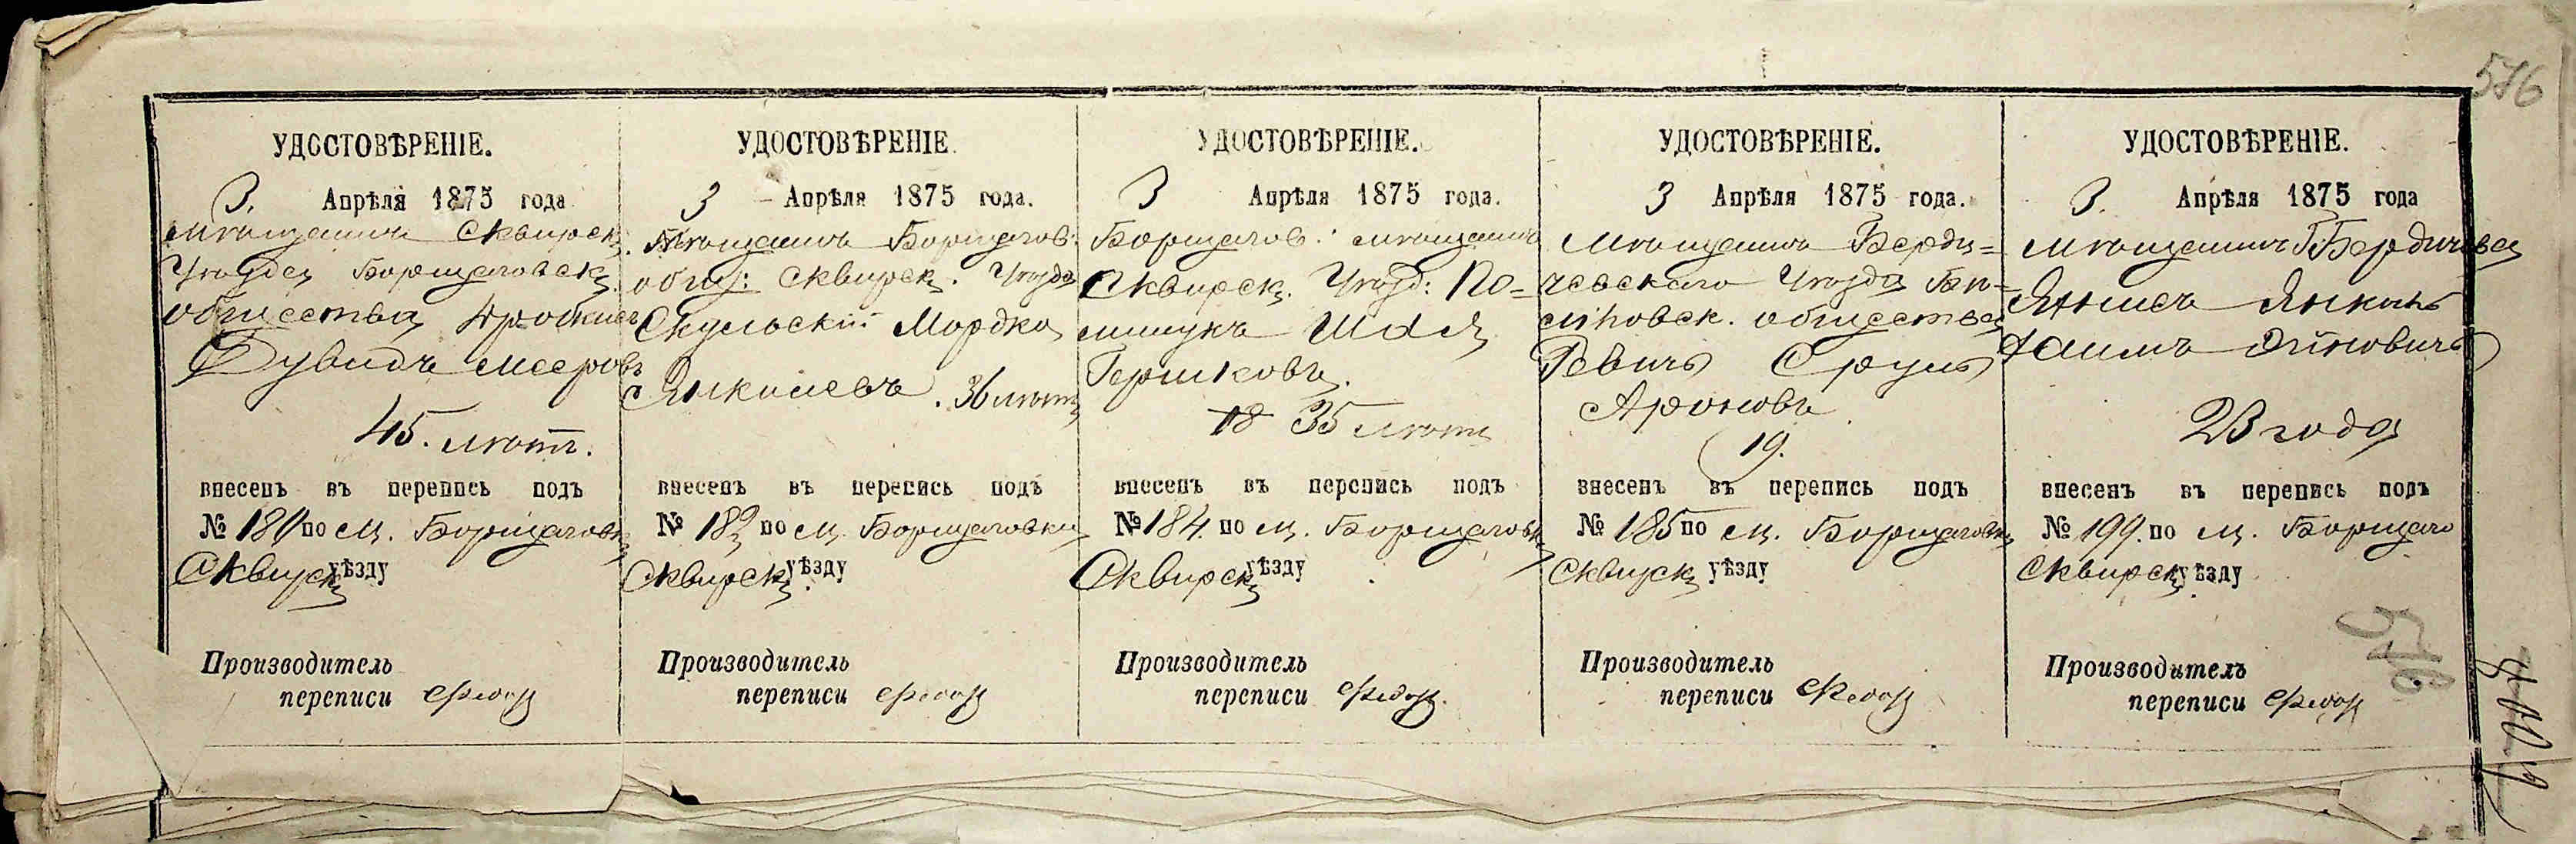 576
УДОСТОВѢРЕНІЕ.
3. Апрѣля 1875 года
мѣщанинъ Сквирск.
Уѣзда Борщаговск.
общества
Дувидъ Мееровъ
45. лѣтъ.
внесенъ въ перепись подъ
№ по м. Борщаговк
Сквирск уѣзду
Производитель
переписи
УДОСТОВѢРЕНІЕ
3 Апрѣля 1875 года.
Мѣщанинъ Борщагов:
общ: Сквирск. Уѣзда
Скульскій Мордко
Янкелевъ. 36 лѣтъ
внесенъ въ перепись подъ
№ 183 по м. Борщаговки
Сквирск. уѣзду
Производитель
переписи
УДОСТОВѢРЕНІЕ.
3 Апрѣля 1875 года.
Борщагов: мѣщанинъ
Сквирск. Уѣзд: По-
лищукъ Шая
Гершковъ.
18 35 лѣтъ
внесенъ въ перепись подъ
№ 184. по м. Борщаговк
Сквирск уѣзду
Производитель
переписи
УДОСТОВѢРЕНІЕ.
3 Апрѣля 1875 года.
мѣщанинъ Берди=
чевского Уѣзда
общества
Ревичъ Сруль
Ароновъ
19.
внесенъ въ перепись подъ
№ 185 по м. Борщаговк
Сквирск уѣзду
Производитель
переписи
УДОСТОВѢРЕНІЕ.
3. Апрѣля 1875 года
мѣщанинъ Г Бердичева
Янкель
Хаимъ
23 года
внесенъ въ перепись подъ
№ 199. по м. Борщаго
Сквирск уѣзду
Производитель
переписи
576